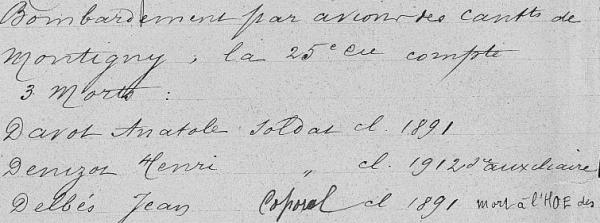 Bombardement par avions des cantts de
Montigny ; la 25e Cie compte
3 Morts :
Davot Anatole Soldat cl. 1891
Denizot Henri " cl. 1912 sce auxiliaire
Delbés Jean Caporal cl 1891 mort à l'HOE des